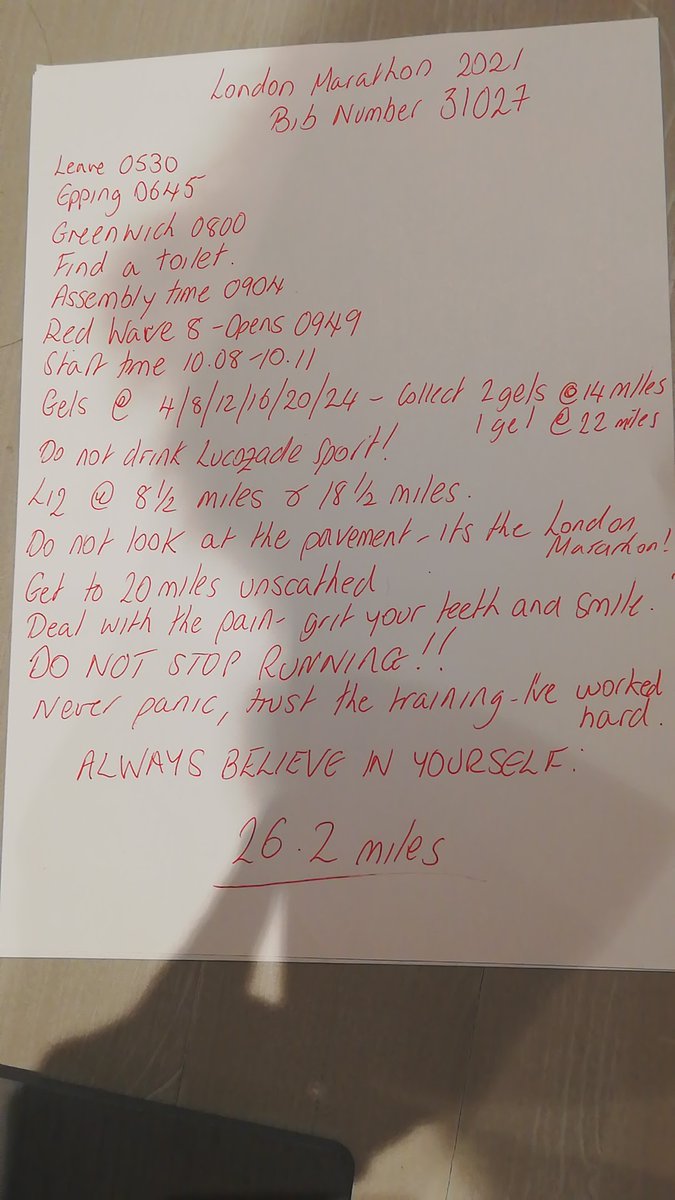 London Marathon 2021
Bib Number 31027
Leave 0530
Epping 0645
Greenwich 0800
Find a toilet.
Assembly time 0904
Red Wave 8 - Opens 0949
Start time 10.08-10.11
Gels @ 4/8/12/16/20/24 - Collect 2 gels @ 14 miles
1 gel @ 22 miles
Do not drink Lucozade Sport!
Liz @ 8 1/2 miles & 18 1/2 miles.
Do not look at the pavement - its the London
Marathon!
Get to 20 miles unscathed
Deal with the pain - grit your teeth and smile.
DO NOT STOP RUNNING!!
Never panic, trust the training - I've worked
hard.
ALWAYS BELIEVE IN YOURSELF:
26.2 miles